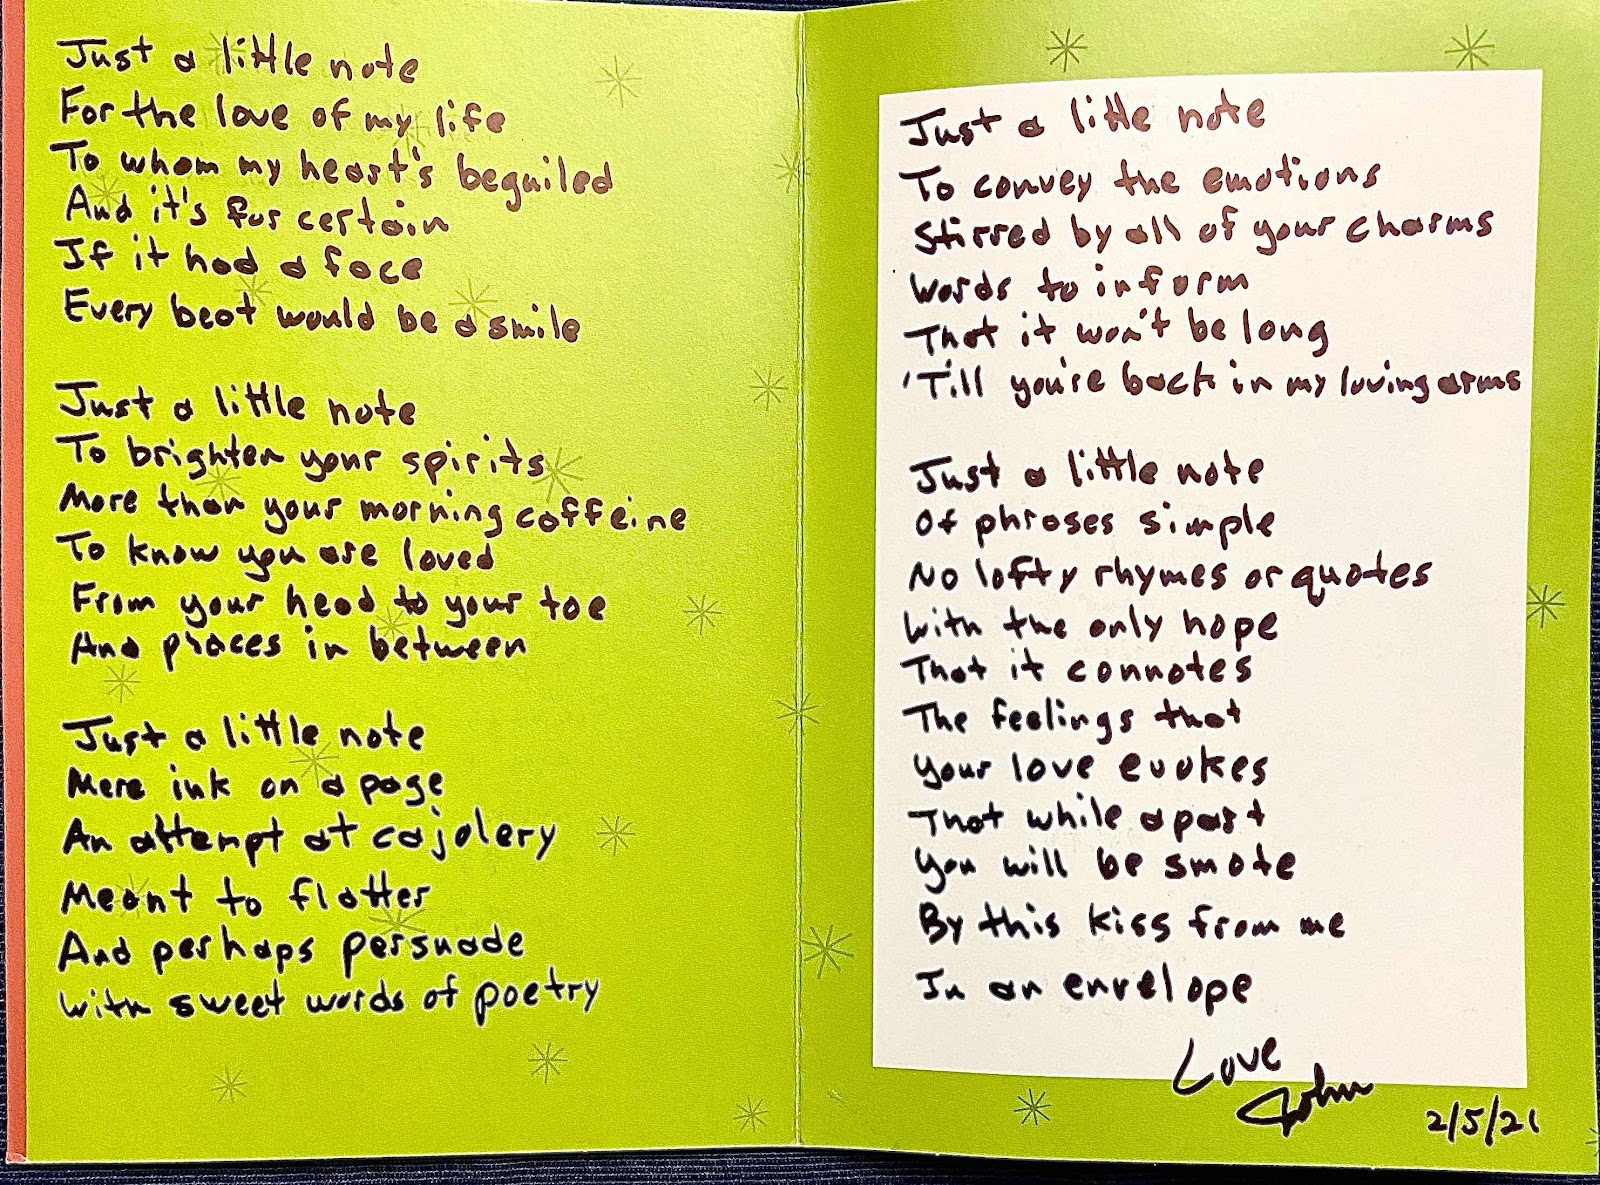 Just a little note
For the love of my life
To whom my heart's beguiled
And it's for certain
If it had a face
Every beat would be a smile
Just a little note
To brighten your spirits
More than your morning caffeine
To know you are loved
From your head to your toe
And places in between
Just a little note
Mere ink on a page
An attempt at cajolery
Meant to flatter
And perhaps persuade
With sweet words of poetry
Just a little note
To convey the emotions
Stirred by all of your charms
Words to inform
That it won't be long
'Till you're back in my loving arms
Just a little note
Of phrases simple
No lofty rhymes or quotes
With the only hope
That it connotes
The feelings that
Your love evokes
That while apart
You will be smote
By this kiss from me
In an envelope
Love
John
2/5/21